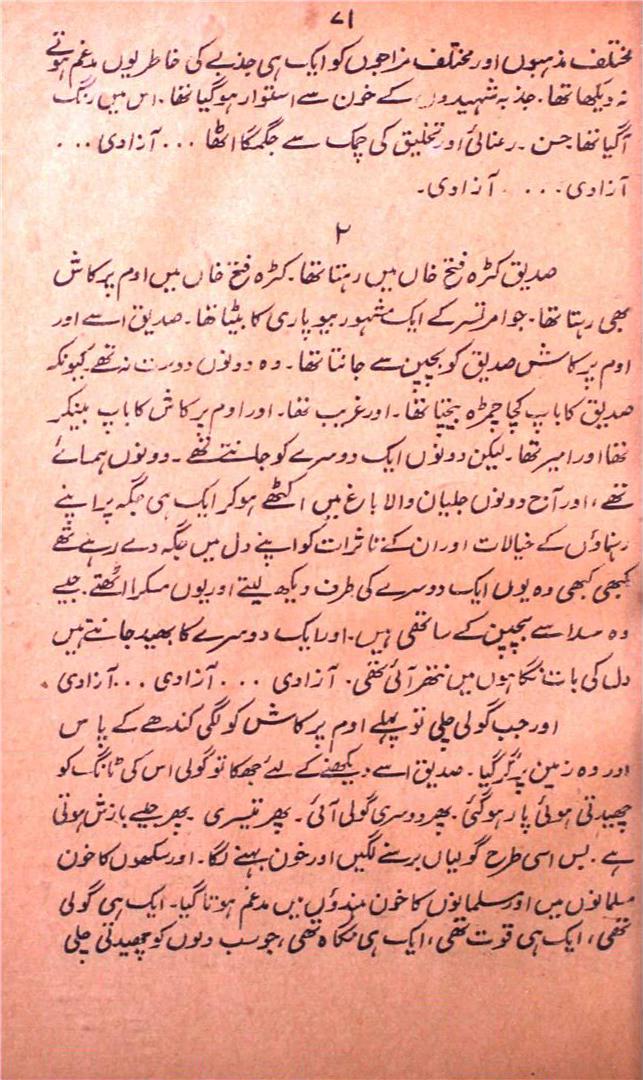 ۷۱
مختلف مذہبوں اور مختلف مزاجوں کو ایک ہی جذبے کی خاطر یوں مدغم ہوتے
نہ دیکھا تھا۔ جذبہ شہیدوں کے خون سے استوار ہو گیا تھا۔ اس میں رنگ
آ گیا تھا حسن۔ رعنائی اور تخلیق کی چمک سے جگمگا اٹھا ... آزادی ...
آزادی ... آزادی۔
۲
صدیق کٹرہ فتح خاں میں رہتا تھا۔ کٹرہ فتح خاں میں اوم پرکاش
بھی رہتا تھا۔ جو امرتسر کے ایک مشہور بیوپاری کا بیٹا تھا۔ صدیق اسے اور
اوم پرکاش صدیق کو بچپن سے جانتا تھا۔ وہ دونوں دوست نہ تھے کیونکہ
صدیق کا باپ کچا چمڑہ بیچتا تھا۔ اور غریب تھا۔ اور اوم پرکاش کا باپ بینکر
تھا اور امیر تھا۔ لیکن دونوں ایک دوسرے کو جانتے تھے۔ دونوں ہمسائے
تھے، اور آج دونوں جلیان والا باغ میں اکٹھے ہو کر ایک ہی جگہ پر اپنے
رہناؤں کے خیالات اور ان کے تاثرات کو اپنے دل میں جگہ دے رہے تھے
کبھی کبھی وہ یوں ایک دوسرے کی طرف دیکھ لیتے اور یوں مسکرا اٹھتے۔ جیسے
وہ سدا سے بچپن کے ساتھی ہیں۔ اور ایک دوسرے کا بھید جانتے ہیں
دل کی بات نگاہوں میں نتھر آئی تھی۔ آزادی ... آزادی ... آزادی۔
اور جب گولی چلی تو پہلے اوم پرکاش کو لگی کندھے کے پاس
اور وہ زمین پر گر گیا۔ صدیق اسے دیکھنے کے لیے جھکا تو گولی اس کی ٹانگ کو
چھیدتی ہوئی پار ہو گئی۔ پھر دوسری گولی آئی۔ پھر تیسری پھر جیسے بارش ہوتی
ہے۔ بس اسی طرح گولیاں برسنے لگیں اور خون بہنے لگا۔ اور سکھوں کا خون
مسلمانوں میں اور مسلمانوں کا خون ہندوؤں میں مدغم ہوتا گیا۔ ایک ہی گولی
تھی، ایک ہی قوت تھی، ایک ہی نگاہ تھی، جو سب دلوں کو چھیدتی چلی